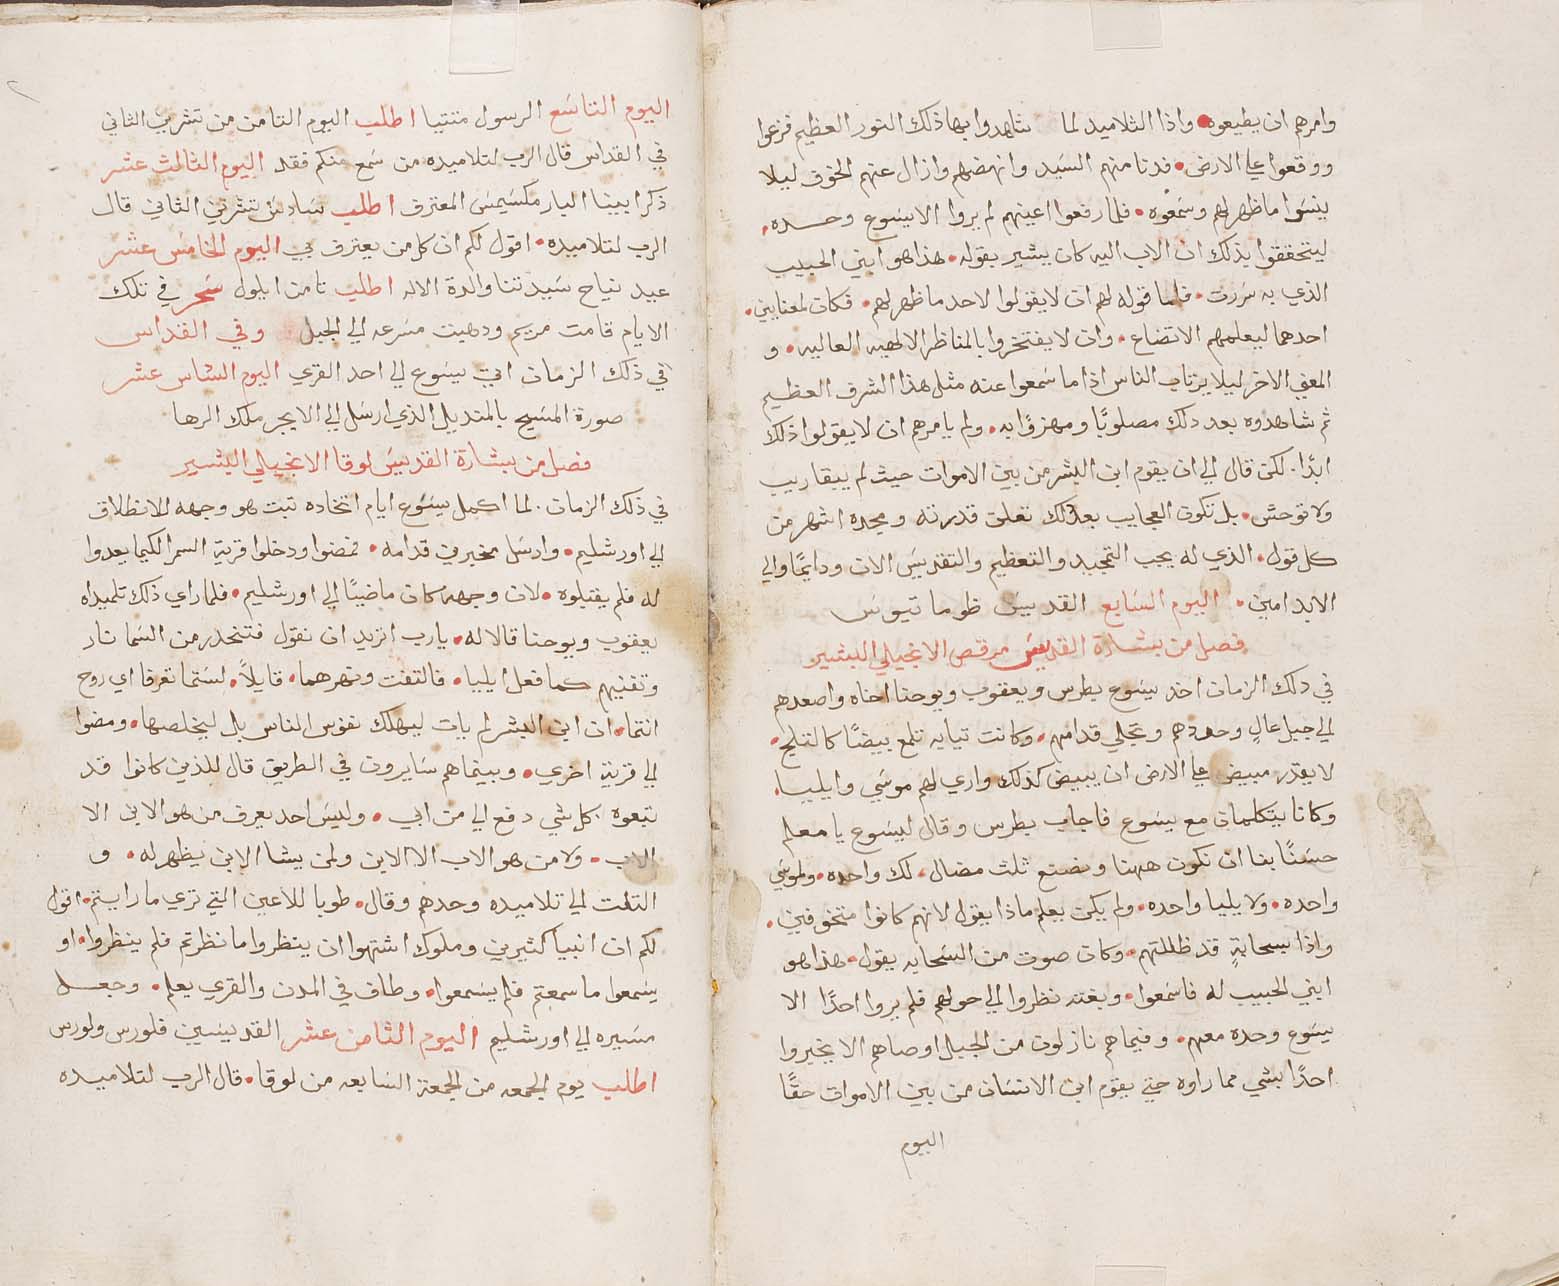 وامرهم ان يطيعوه • واذا التلاميد لما شاهدوا بها ذلك النور العظيم فزعوا
ووقعوا علي الارض • فدنا منهم السَيد وانهضهم وازال عنهم الخوف ليلا
ينسَوا ما ظهر لهم وسَمعوه • فلما رفعوا اعينهم لم يروا الا يسَوع وحده •
ليتحققوا بذلك ان الاب اليه كان يشير بقوله • هذا هو ابني الحبيب
الذي به سَررت • فاما قوله لهم ان لا يقولوا لاحد ما ظهر لهم • فكان لمعنايين •
احدهما ليعلمهم الاتضاع • وان لا يفتخروا بالمناظر الالهيه العاليه • و
المعني الاخر ليلا يرتاب الناس اذا ما سَمعوا عنه مثل هذا الشرف العظيم
ثم شاهدوه بعد دلك مصلوبًا ومهزوًا به • ولم يامرهم ان لا يقولوا ذلك
ابدًا • لكن قال الي ان يقوم ابن البشر من بين الاموات حيث لم يبقا ريب
ولا توحش • بل تكون العجايب بعد ذلك تعلن قدرته ومجده اشهر من
كل قول • الذي له يجب التمجيد والتعظيم والتقديسَ الان ودايمًا والي
الابد امين • اليوم السَابع القديسَ ظوماتيوسَ
فصل من بشارة القديسَ مرقص الانجيلي البشير
في دلك الزمان اخد يسَوع بطرس ويعقوب ويوحنا اخاه واصعدهم
الي جبل عالٍ وحدهم وتجلي قدامهم • وكانت تيابه تلمع بيضًا كالتلج •
لا يقدر مبيض علي الارض ان يبيض كذلك واري لهم موسَي وايليا •
وكانا يتكلمان مع يسَوع فاجاب بطرس وقال ليسَوع يا معلم
حسَنًا بنا ان نكون ههنا ونصنع ثلث مضال • لك واحده • ولموسَي
واحده • ولايليا واحده • ولم يكن يعلم ماذا يقول لانهم كانوا متخوفين •
واذا بسحابةٍ قد ظللتهم • وكان صوت من السَحابه يقول • هذا هو
ابني الحبيب له فاسَمعوا • وبغته نظروا الي حولهم فلم يروا احدًا الا
يسَوع وحده معهم • وفيما هم نازلون من الجبل اوصاهم الا يخبروا
احدًا بشي مما راوه حتي يقوم ابن الانسَان من بين الاموات حقًا
اليوم
اليوم التاسَع الرسول متتيا اطلب اليوم التامن من تشرين الثاني
في القداس قال الرب لتلاميده من سَمع منكم فقد اليوم الثالث عشر
ذكر ابينا البار مكسَيمسَ المعترف اطلب سَادسَ تشرين الثاني قال
الرب لتلاميده • اقول لكم ان كل من يعترف بي اليوم الخامسَ عشر
عيد نياح سَيدتنا والدة الاله اطلب تامن ايلول سَحر في تلك
الايام قامت مريم ودهبت مسَرعه الي الجبل وفي القداس
في ذلك الزمان اتي يسوع الي احد القري اليوم السَاسَ عشر
صورة المسَيح بالمنديل الذي ارسَل الي الابجر ملك الرها
فصل من بشارة القديسَ لوقا الانجيلي البشير
في ذلك الزمان • لما اكمل يسَوع ايام اتخاده تبت هو وجهه للانطلاق
الي اورشليم • وارسَل مخبرين قدامه • فمضوا ودخلوا قرية السمرا لكيما يعدوا
له فلم يقبلوه • لان وجهه كان ماضيًا الي اورشليم • فلما راي ذلك تلميداه
يعقوب ويوحنا قالا له • يا رب اتريد ان نقول فتنحدر من السَما نار
وتفنيهم كما فعل ايليا • فالتفت ونهرهما • قايلاً • لسَتما تعرفا اي روح
انتما • ان ابن البشر لم يات ليهلك نفوس الناس بل ليخلصها • ومضوا
الي قرية اخري • وبينما هم سَايرون في الطريق قال للذين كانوا قد
تبعوه • كل شي دفع الي من ابي • وليسَ احد يعرف من هو الابن الا
الاب • ولا من هو الاب الا الابن ولمن يشا الابن يظهر له • و
التفت الي تلاميده وحدهم وقال • طوبا للاعين التي تري ما رايتم • اقول
لكم ان انبيا كثيرين وملوك اشتهوا ان ينظروا ما نظرتم فلم ينظروا • او
يسَمعوا ما سمعتم فلم يسَمعوا • وطاف في المدن والقري يعلم • وجعل
مسَيره الي اورشليم اليوم الثامن عشر القديسَين فلورس ولورس
اطلب يوم الجمعه من الجمعة السَابعه من لوقا • قال الرب لتلاميده